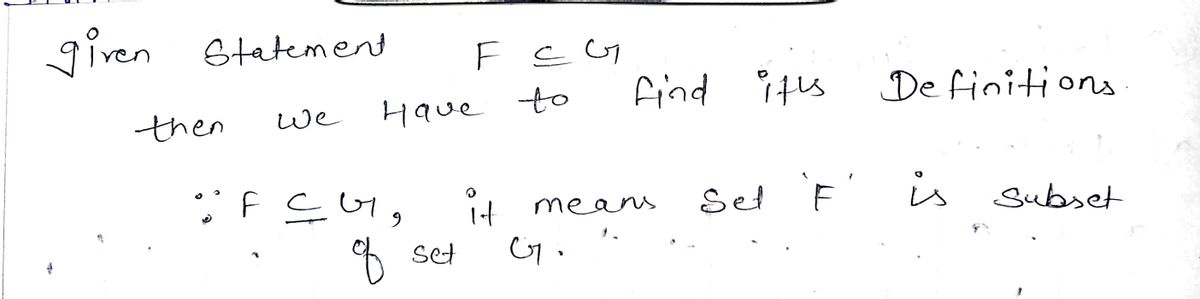 given Statement F ⊆ G
then we Have to find its Definitions.
∵ F ⊆ G, it means Set 'F' is Subset
of set G.